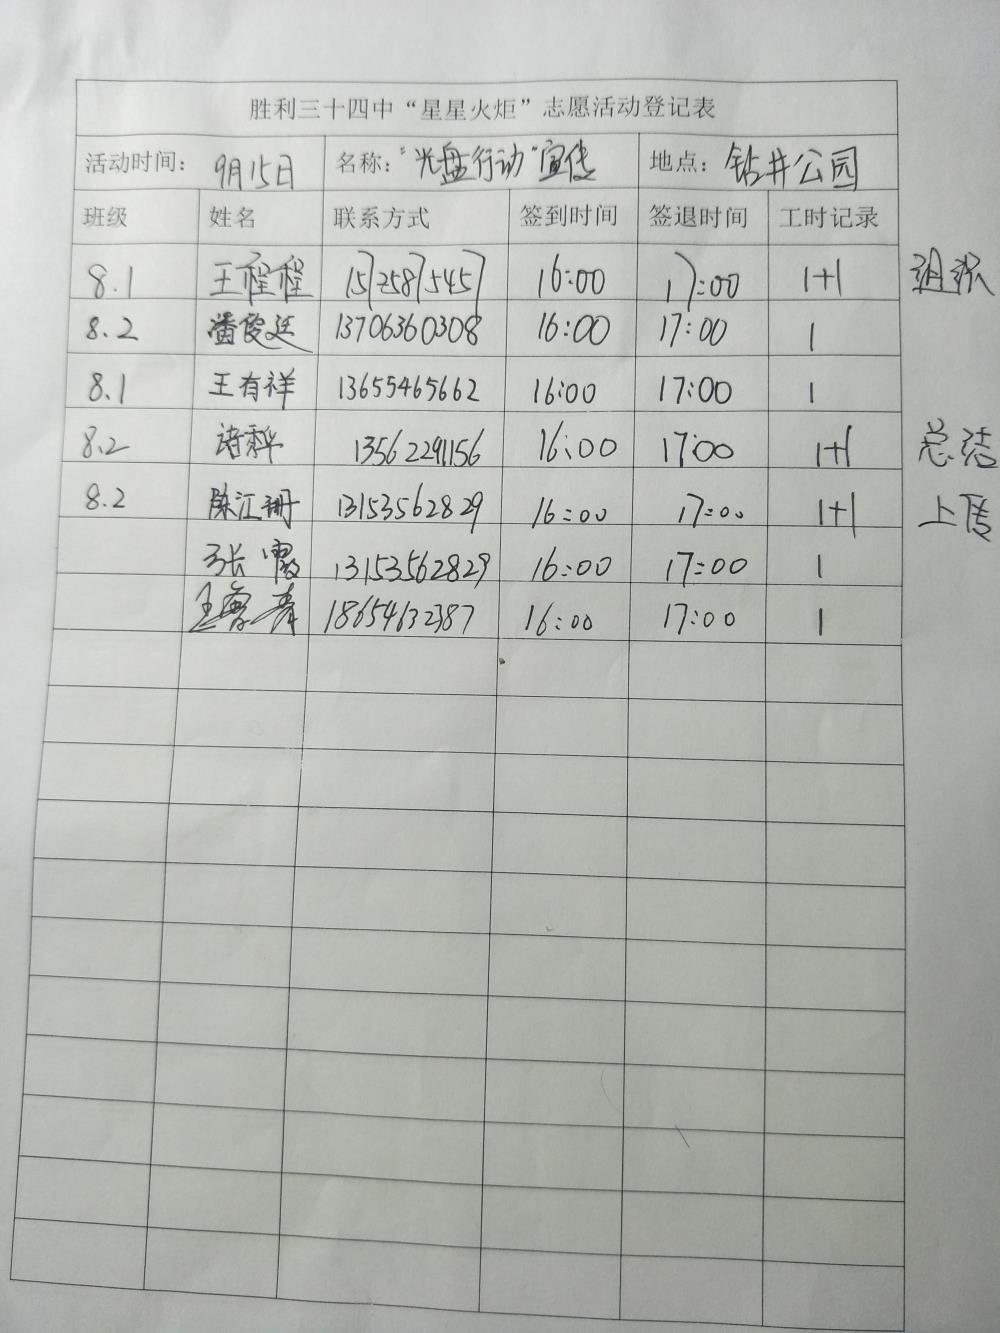 胜利三十四中“星星火炬”志愿活动登记表
活动时间: 9月15日 名称:“光盘行动”宣传 地点: 钻井公园
班级 姓名 联系方式 签到时间 签退时间 工时记录
8.1 王程程 15725875457 16:00 17:00 1+1 组织
8.2 潘俊廷 13706360308 16:00 17:00 1
8.1 王有祥 13655465662 16:00 17:00 1
8.2 13562291156 16:00 17:00 1+1 总结
8.2 陈江珊 13153562829 16:00 17:00 1+1 上传
张霞 13153562829 16:00 17:00 1
王 18654632387 16:00 17:00 1